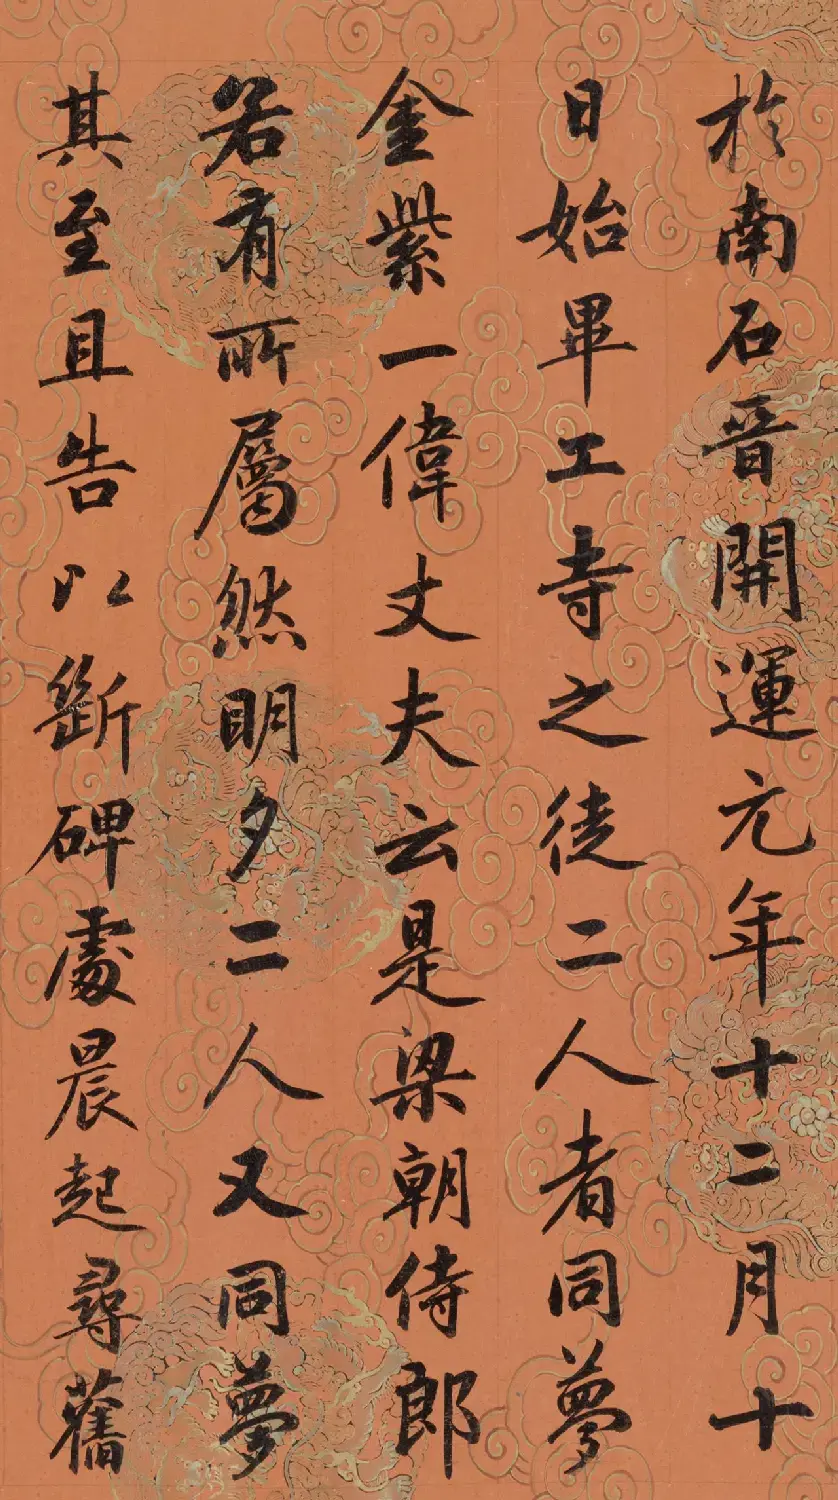 於南石晉開運元年十二月十
日始畢工寺之徒二人者同夢
金紫一偉丈夫云是梁朝侍郎
若有所屬然明夕二人又同夢
其至且告以斷碑處晨起尋舊